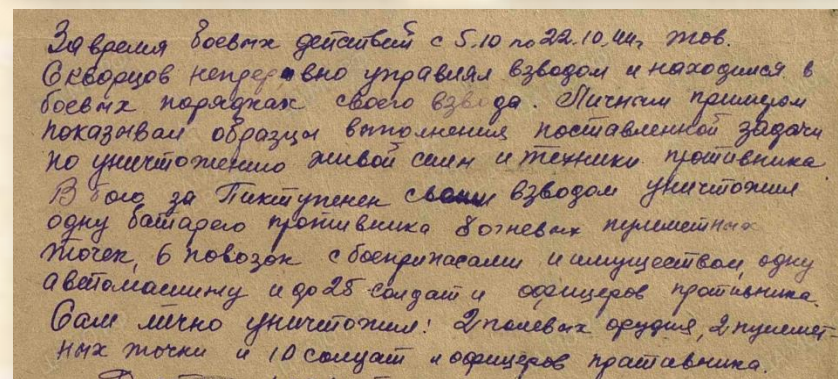 За время боевых действий с 5.10 по 22.10.44г тов.
Скворцов непрерывно управлял взводом и находился в
боевых порядках своего взвода. Личным примером
показывал образцы выполнения поставленной задачи
по уничтожению живой силы и техники противника.
В бою за Пиктупенен своим взводом уничтожил
одну батарею противника 8 огневых пулеметных
точек, 6 повозок с боеприпасами и имуществом, одну
автомашину и до 25 солдат и офицеров противника.
Сам лично уничтожил: 2 полевых орудия, 2 пулемет-
ных точки и 10 солдат и офицеров противника.